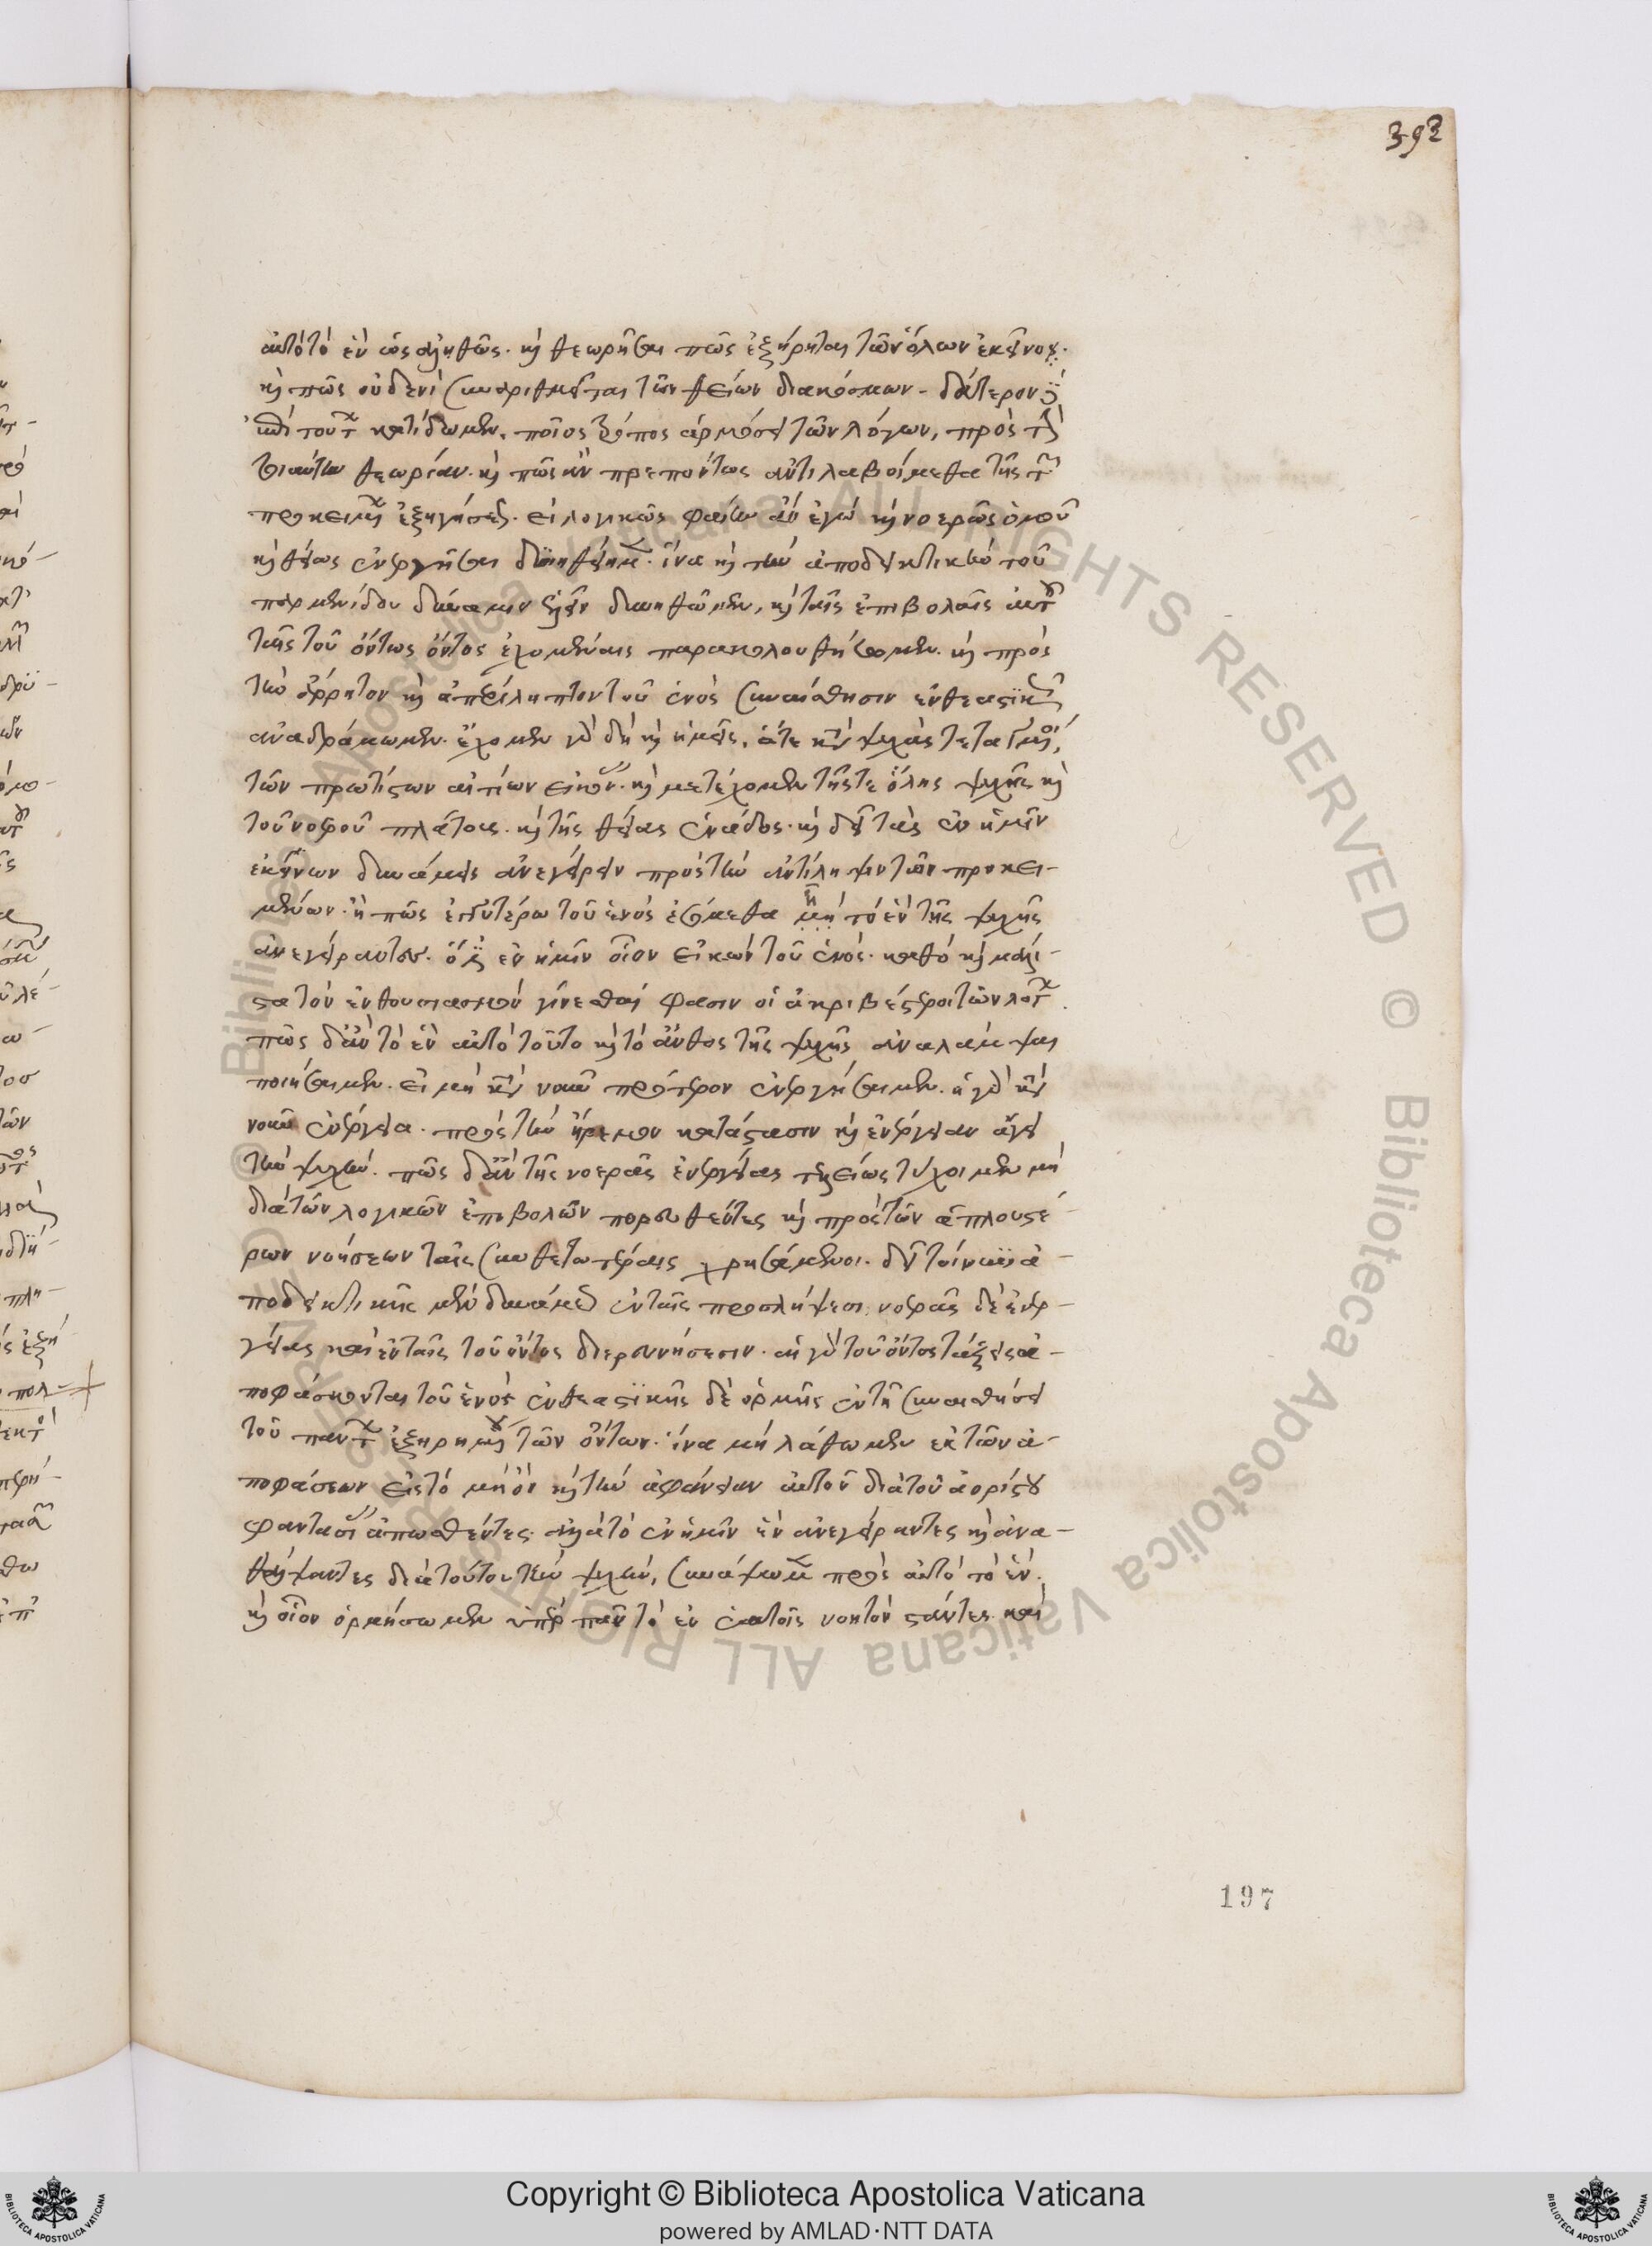 392
αὐτὸ τὸ ἓν ὡς ἀληθῶς. καὶ θεωρῆσαι πῶς ἐξῄρηται τῶν ὅλων ἐκεῖνος.
καὶ πῶς οὐδενὶ συναριθμεῖται τῶν θείων διακόσμων. δεύτερον
ἐπὶ τούτῳ κατίδωμεν, ποῖος τρόπος ἁρμόσει τῶν λόγων, πρὸς τὴν
τοιαύτην θεωρίαν. καὶ πῶς ἂν πρεπόντως ἀντιλαβοίμεθα τῆς τῶν
προκειμένων ἐξηγήσεως. εἰ λογικῶς φαίην ἂν ἐγὼ καὶ νοερῶς ὁμοῦ
καὶ θείως ἐνεργῆσαι διανοηθείημεν. ἵνα καὶ τὴν ἀποδεικτικὴν τοῦ
παρμενίδου δύναμιν ἑλεῖν δυνηθῶμεν, καὶ ταῖς ἐπιβολαῖς αὐτοῦ
ταῖς τοῦ ὄντως ὄντος ἐχομέναις παρακολουθήσωμεν. καὶ πρὸς
τὴν ἄρρητον καὶ ἀπερίληπτον τοῦ ἑνὸς συναίσθησιν ἐνθεαστικῶς
ἀναδράμωμεν. ἔχομεν γὰρ δὴ καὶ ἡμεῖς, ἅτε κατὰ ψυχὰς τεταγμένοι,
τῶν πρωτίστων αἰτίων εἰκόνας. καὶ μετέχομεν τῆς τε ὅλης ψυχῆς καὶ
τοῦ νοεροῦ πλάτους. καὶ τῆς θείας ἑνάδος. καὶ δεῖ τὰς ἐν ἡμῖν
ἐκείνων δυνάμεις ἀνεγείρειν πρὸς τὴν ἀντίληψιν τῶν προκει-
μένων. ἢ πῶς ἐγγυτέρω τοῦ ἑνὸς ἐσόμεθα μὴ τὸ ἓν τῆς ψυχῆς
ἀνεγείραντες. ὅ ἐστιν ἐν ἡμῖν οἷον εἰκὼν τοῦ ἑνός. καθὸ καὶ μάλι-
στα τὸν ἐνθουσιασμὸν γίνεσθαί φασιν οἱ ἀκριβέστεροι τῶν λόγων.
πῶς δ' ἂν τὸ ἓν αὐτὸ τοῦτο καὶ τὸ ἄνθος τῆς ψυχῆς ἀναλάμψαι
ποιήσαιμεν. εἰ μὴ κατὰ νοῦν πρότερον ἐνεργήσαιμεν. ἡ γὰρ κατὰ
νοῦν ἐνέργεια. πρὸς τὴν ἤρεμον κατάστασιν καὶ ἐνέργειαν ἄγει
τὴν ψυχήν. πῶς δ' ἂν τῆς νοερᾶς ἐνεργείας τελείως τύχοιμεν μὴ
διὰ τῶν λογικῶν ἐπιβολῶν πορευθέντες καὶ πρὸ τῶν ἁπλουστέ-
ρων νοήσεων ταῖς συνθετωτέραις χρησάμενοι. δεῖ τοίνυν ἀ-
ποδεικτικῆς μὲν δυνάμεως ἐν ταῖς προσλήψεσι, νοερᾶς δὲ ἐνερ-
γείας καὶ ἐν ταῖς τοῦ ὄντος διερευνήσεσιν. αἱ γὰρ τοῦ ὄντος τάξεις ἀ-
ποφάσκονται τοῦ ἑνὸς ἐνθεαστικῆς δὲ ὁρμῆς ἐν τῇ συναισθήσει
τοῦ πάντων ἐξῃρημένου τῶν ὄντων. ἵνα μὴ λάθωμεν ἐκ τῶν ἀ-
ποφάσεων εἰς τὸ μὴ ὂν καὶ τὴν ἀφάνειαν αὐτοῦ διὰ τοῦ ἀορίστου
φαντασίας ἀπωσθέντες. ἀλλὰ τὸ ἐν ἡμῖν ἓν ἀνεγείραντες καὶ ἀνα-
θάλψαντες διὰ τούτου τὴν ψυχὴν, συνάψωμεν πρὸς αὐτὸ τὸ ἕν.
καὶ οἷον ὁρμήσωμεν ὑπὲρ πᾶν τὸ ἐν ἑαυτοῖς νοητὸν στάντες. καὶ
197
Copyright © Biblioteca Apostolica Vaticana
powered by AMLAD·NTT DATA